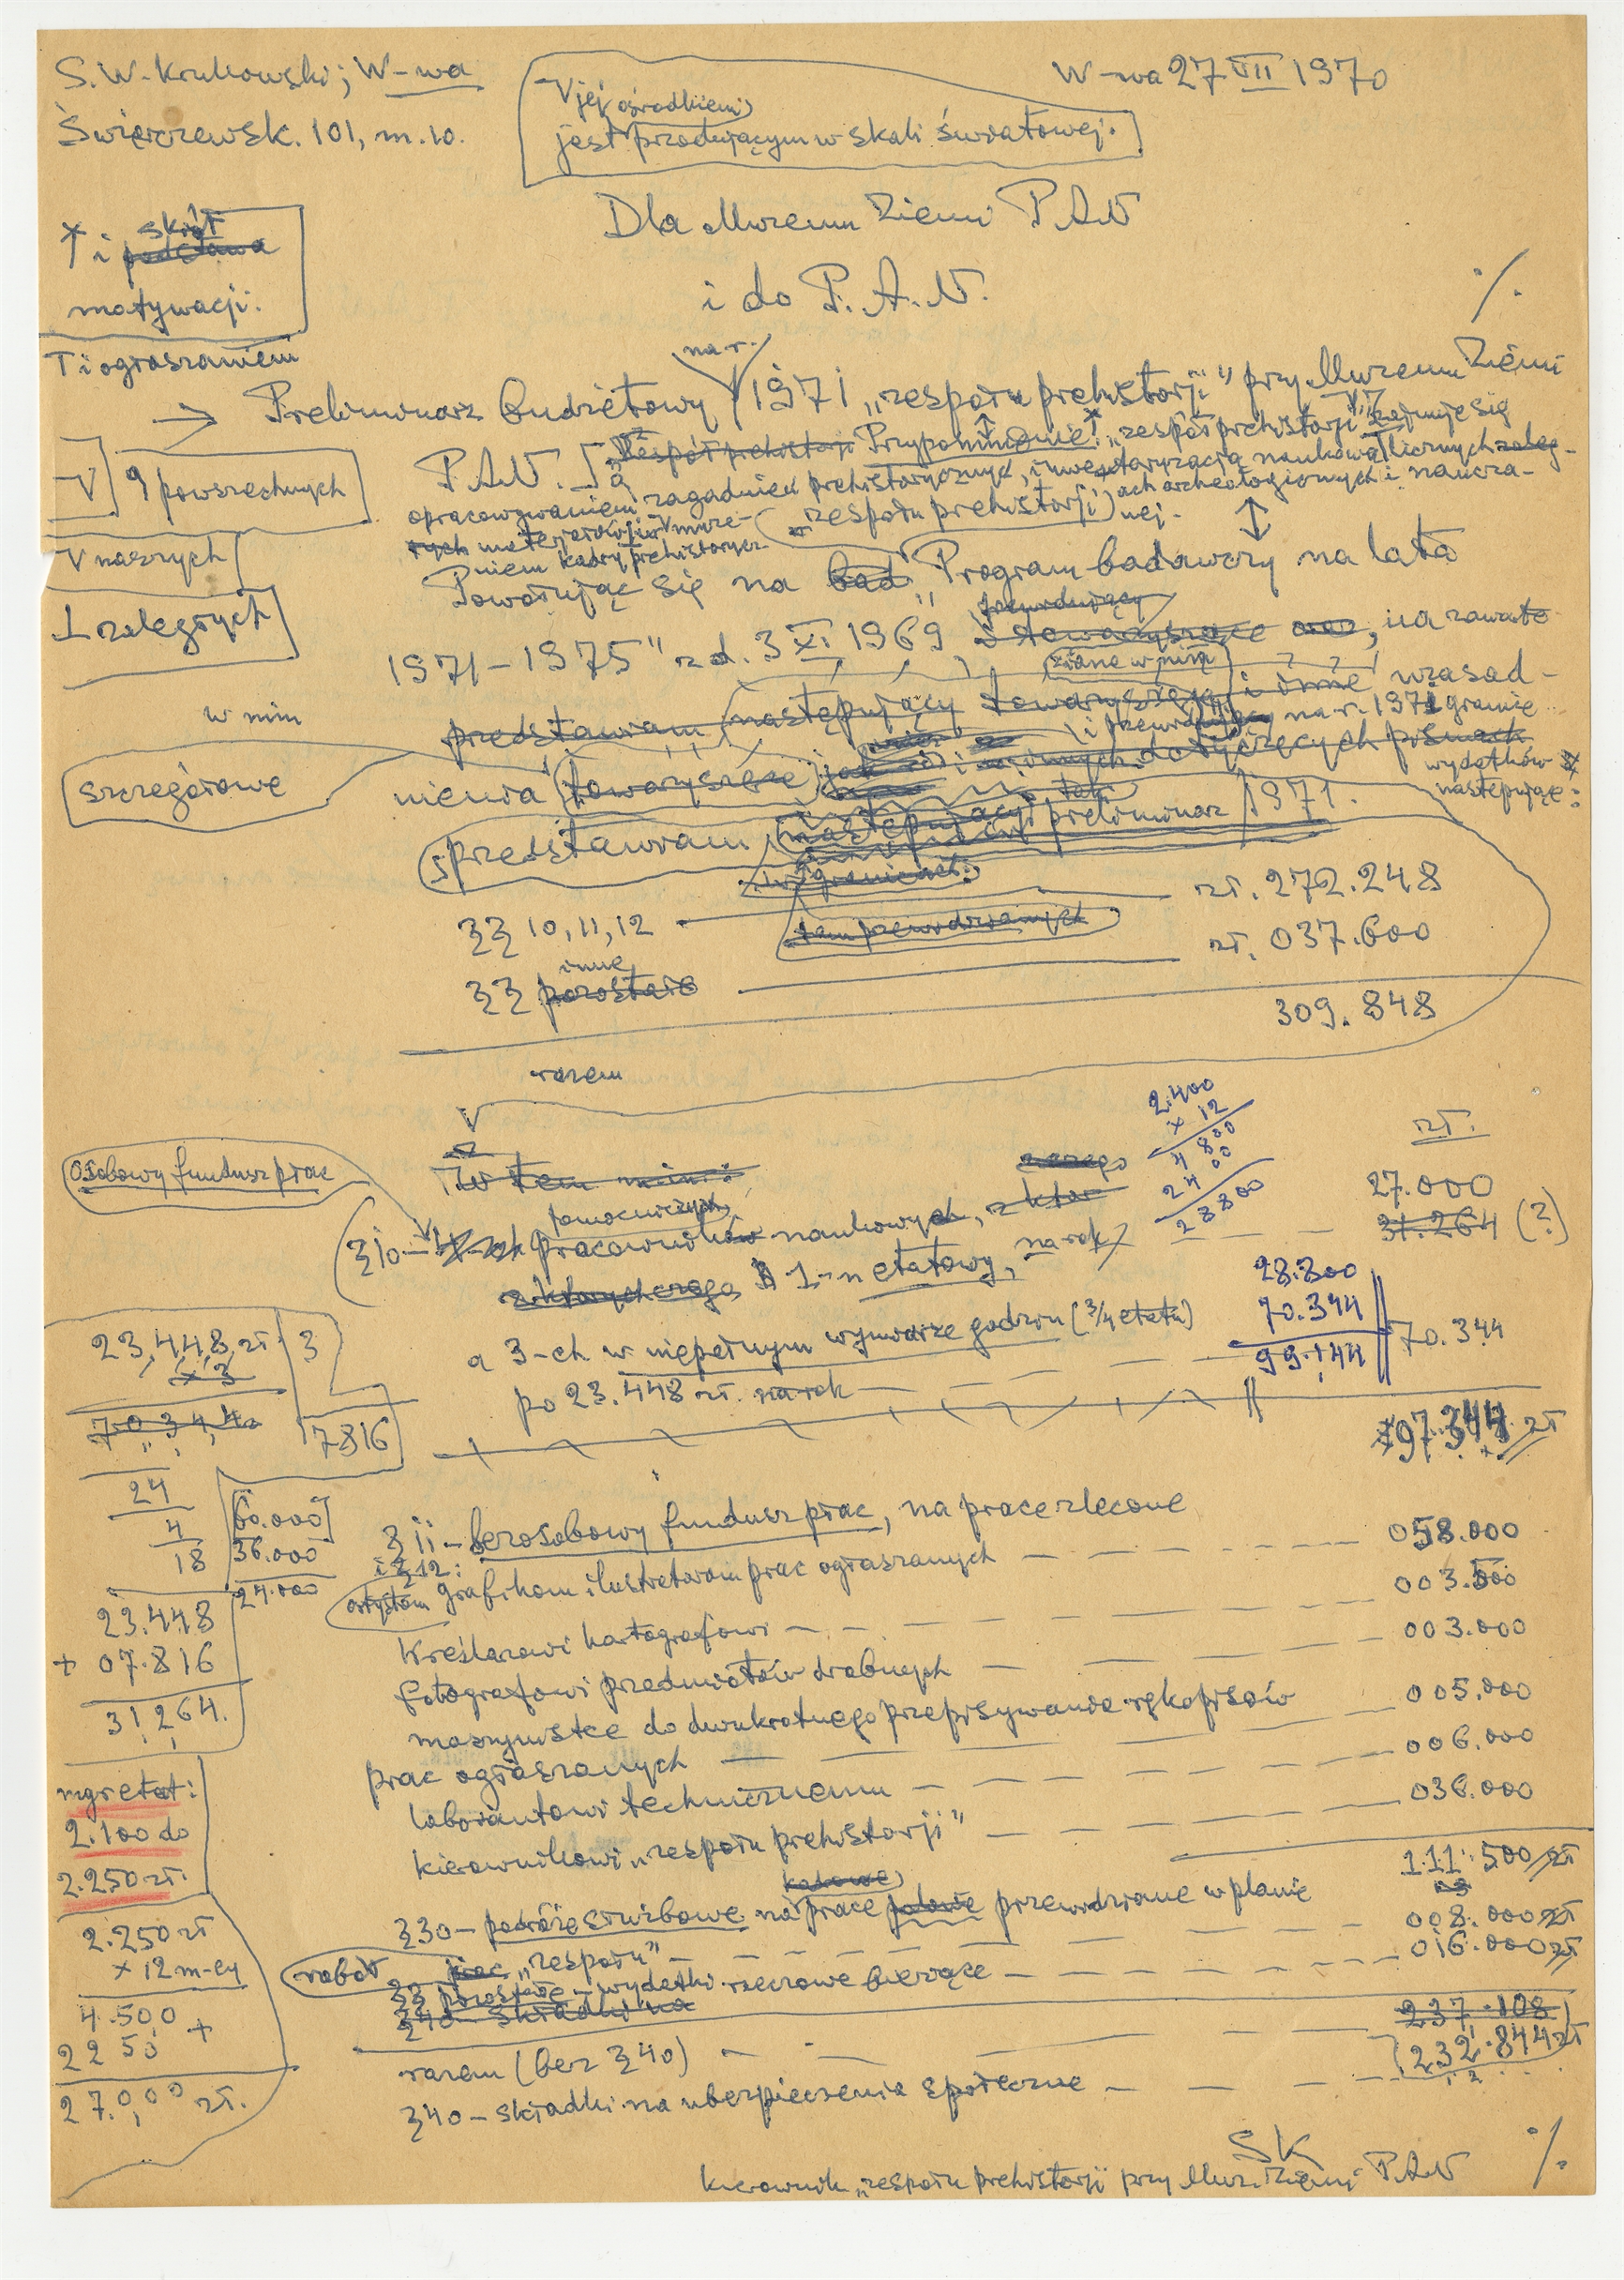 S. W. Krukowski; W-wa
Świerczewsk. 101, m. 10.
W-wa 27 VII 1970
V jej ośrodkiem
jest przodującym w skali światowej.
Dla Muzeum Ziemi PAN
i do P.A.N.
%
skrót
i podstawa
motywacji:
T i ogłaszaniem
na r.
Preliminarz budżetowy 1971 „zespołu prehistorji" przy Muzeum Ziemi
P.A.N. Zespół prehistorji Przypomnienie: „zespół prehistorji" zajmuje się
opracowywaniem zagadnień prehistorycznych, inwentaryzacją naukową licznych zaleg-
łych materjałów w muze- ach archeologicznych i naucza-
niem kadry prehistorycz- „zespołu prehistorji) nej.
V 9 powszechnych
V naszych
⊥ zaległych
Powołując się na bad „Program badawczy na lata
1971–1975" z d. 3 XI 1969, na zawarte
przewidujący
w nim
zdane w nim
przedstawiam następujący towarzyszące i inne uzasad-
i przewiduję na r. 1971 granice
szczegółowe
nienia towarzyszące i innych dotyczących pismach
wydatków
następujące:
przedstawiam następujący preliminarz 1971.
w granicach:
§§ 10, 11, 12 zł. 272.248
tam przewidzianych
inne
§§ pozostałe zł. 037.600
309.848
razem
2.400
x 12
4 800
24 00
28800
zł.
Osobowy fundusz płac
W tem mini:
27.000
pomocniczych
§10 – pracowników naukowych, z któr
31.264 (?)
z których czego 1-n etatowy, na rok
28.800
70.344
99.144
a 3-ch w niepełnym wymiarze godzin (3/4 etatu)
70.344
po 23.448 zł. na rok
97.344 zł
23,448 zł 3
x 3
70344
7816
24
4
18
60.000
36.000
24.000
23.448
+ 07.816
31,264.
§ 11 – bezosobowy fundusz płac, na prace zlecone
i § 12:
058.000
artystom grafikom ilustratorom prac ogłaszanych
003.500
Kreślarzowi kartografowi
003.000
fotografowi przedmiotów drobnych
005.000
maszynistce do dwukrotnego przepisywania rękopisów
prac ogłaszanych
006.000
laborantowi technicznemu
036.000
kierownikowi „zespołu prehistorji"
111.500 zł
mgr etat:
2.100 do
2.250 zł.
2.250 zł
x 12 m-cy
4.500 +
2250
27.000 zł.
§30 – podróże służbowe na prace polowe przewidziane w planie
008.000 zł
robót prac „zespołu"
016.000 zł
§§ pozostałe – wydatki rzeczowe bieżące
§40 – składki na
237.108
razem (bez §40)
232.844 zł
§40 – składki na ubezpieczenia społeczne
SK
kierownik „zespołu prehistorji przy Muz. Ziemi PAN
%